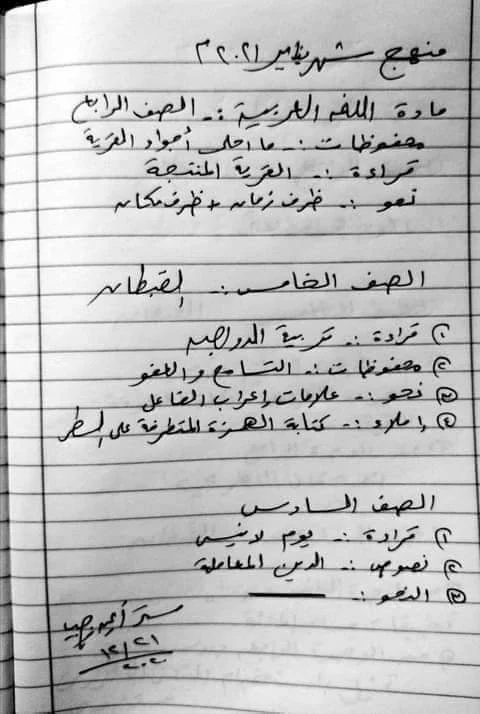 منهج شهر يناير ٢٠٢١ م
مادة اللغة العربية :- الصف الرابع
محفوظات :- ما احلى أجواد القرية
قراءة :- القرية المنتجة
نحو :- ظرف زمان + ظرف مكان
الصف الخامس :- القبطان
١) قراءة :- تربية الدواجن
٢) محفوظات :- التسامح والعفو
٣) نحو :- علامات إعراب الفاعل
٤) إملاء :- كتابة الهمزة المتطرفة على السطر
الصف السادس
١) قراءة :- يوم لا ينسى
٢) نصوص :- الدين المعاملة
٣) النحو :- ــــــ
١٢/٢١
٢٠٢٠